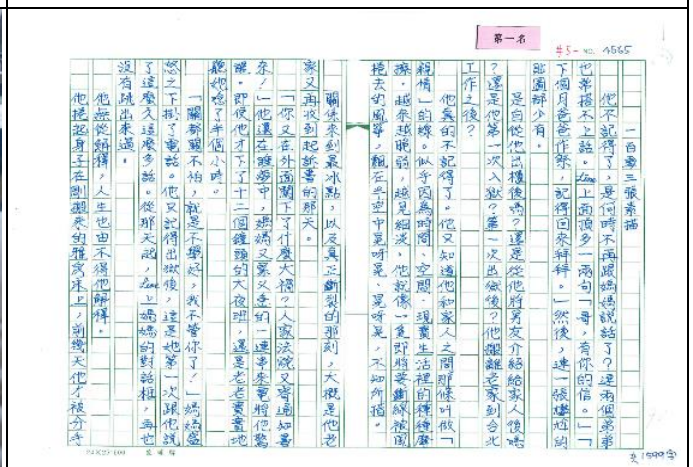 第一名
#5- NO. 4565
一百零三張素描
他不記得了，是何時不再跟媽媽說話了？連兩個弟弟
也常搭不上話。Line上面頂多一兩句「哥，有你的信。」「
下個月爸爸作祭，記得回來拜拜。」然後，連一張尷尬的
貼圖都少有。
是自從他出櫃後嗎？還是從他將男友介紹給家人後嗎
？還是他第一次入獄？第一次出獄後？他搬離老家到台北
工作之後？
他真的不記得了。他只知道他和家人之間那條叫做「
親情」的線。似乎因為時間、空間、現實生活裡的種種磨
擦，越來越脆弱，越見細淡，他就像一隻即將要斷線被風
捲去的風箏，飄在半空中晃呀晃、晃呀晃，不知所措。
關係來到最冰點，以及真正斷裂的那刻，大概是他老
家又再收到起訴書的那天。
「你又在外面闖下了什麼大禍？人家法院又寄通知書
來！」他還在睡夢中，媽媽又罵又念的一連串來電將他驚
醒。即使他才下了十二個鐘頭的大夜班，還是老老實實地
聽她唸了半個小時。
「關都關不怕，就是不學好，我不管你了！」媽媽盛
怒之下掛了電話。他只記得出獄後，這是她第一次跟他說
了這麼久這麼多話。從那天起，Line上媽媽的對話框，再也
沒有跳出來過。
他無從解釋，人生也由不得他解釋。
他捲起身子在剛搬來的雅房床上，前幾天他才被分手
共1599字